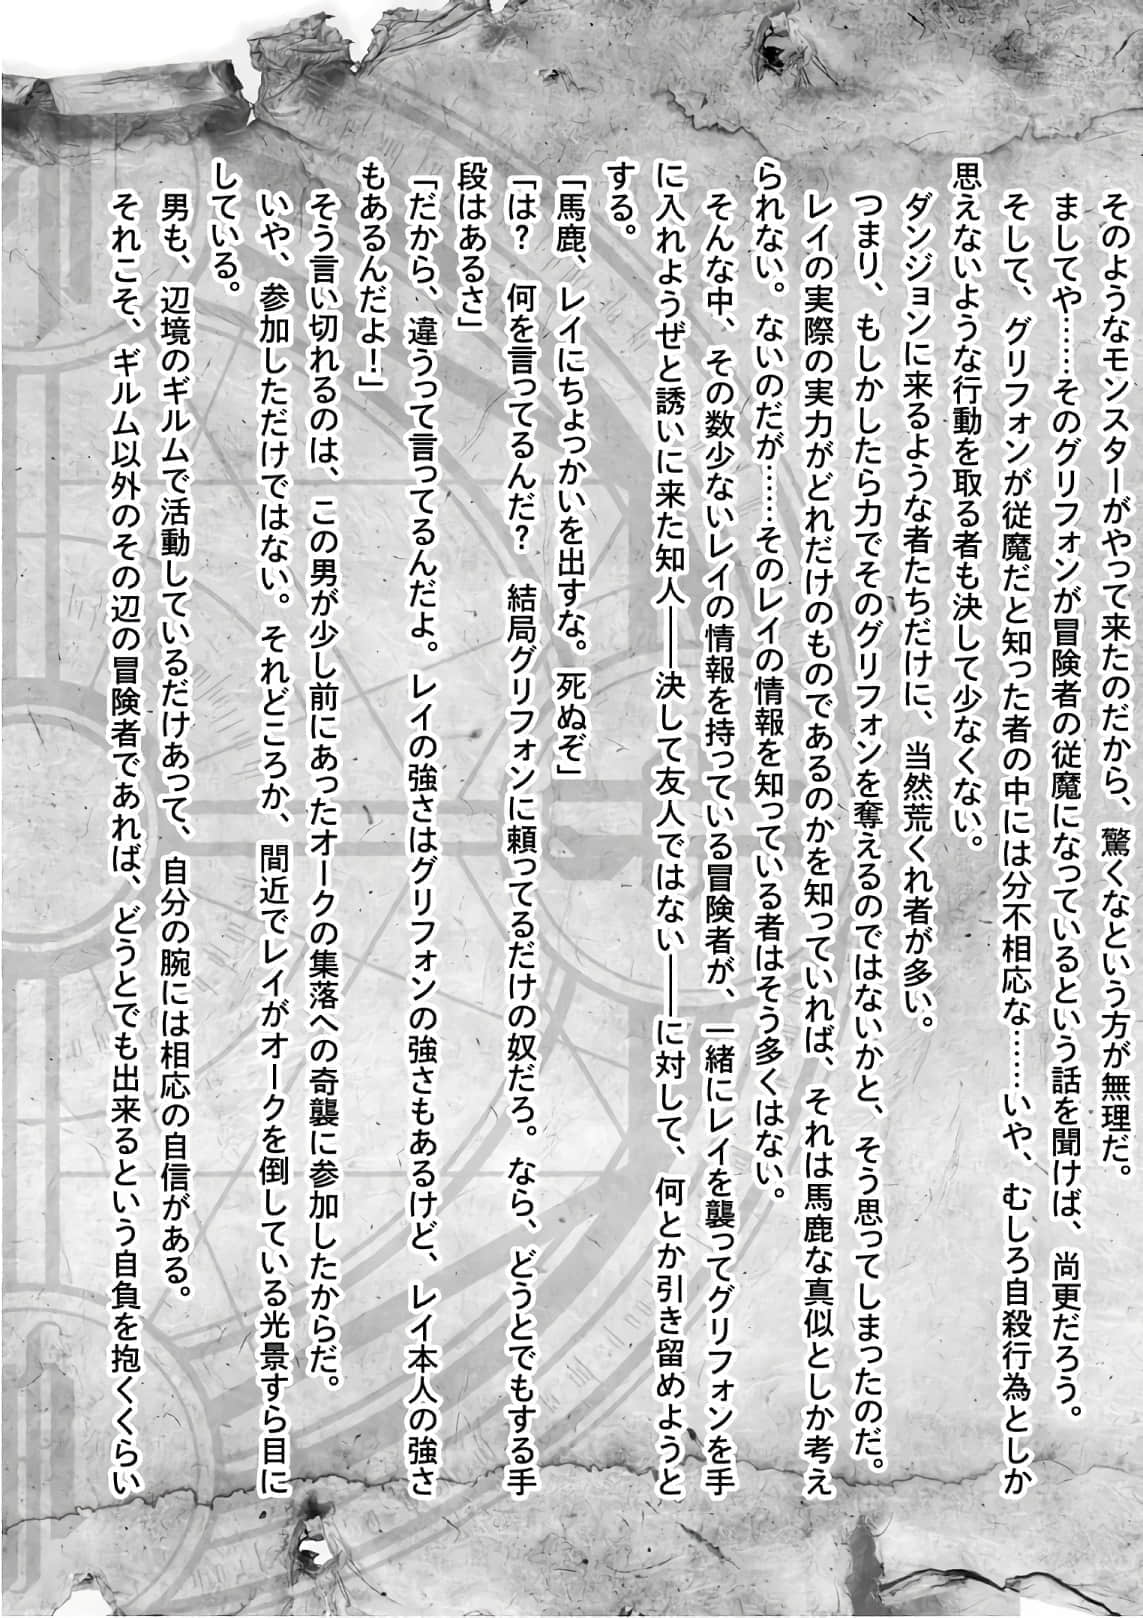 そのようなモンスターがやって来たのだから、驚くなという方が無理だ。
ましてや……そのグリフォンが冒険者の従魔になっているという話を聞けば、尚更だろう。
そして、グリフォンが従魔だと知った者の中には分不相応な……いや、むしろ自殺行為としか
思えないような行動を取る者も決して少なくない。
ダンジョンに来るような者たちだけに、当然荒くれ者が多い。
つまり、もしかしたら力でそのグリフォンを奪えるのではないかと、そう思ってしまったのだ。
レイの実際の実力がどれだけのものであるのかを知っていれば、それは馬鹿な真似としか考え
られない。ないのだが……そのレイの情報を知っている者はそう多くはない。
そんな中、その数少ないレイの情報を持っている冒険者が、一緒にレイを襲ってグリフォンを手
に入れようぜと誘いに来た知人――決して友人ではない――に対して、何とか引き留めようと
する。
「馬鹿、レイにちょっかいを出すな。死ぬぞ」
「は？　何を言ってるんだ？　結局グリフォンに頼ってるだけの奴だろ。なら、どうとでもする手
段はあるさ」
「だから、違うって言ってるんだよ。レイの強さはグリフォンの強さもあるけど、レイ本人の強さ
もあるんだよ！」
そう言い切れるのは、この男が少し前にあったオークの集落への奇襲に参加したからだ。
いや、参加しただけではない。それどころか、間近でレイがオークを倒している光景すら目に
している。
男も、辺境のギルムで活動しているだけあって、自分の腕には相応の自信がある。
それこそ、ギルム以外のその辺の冒険者であれば、どうとでも出来るという自負を抱くくらい